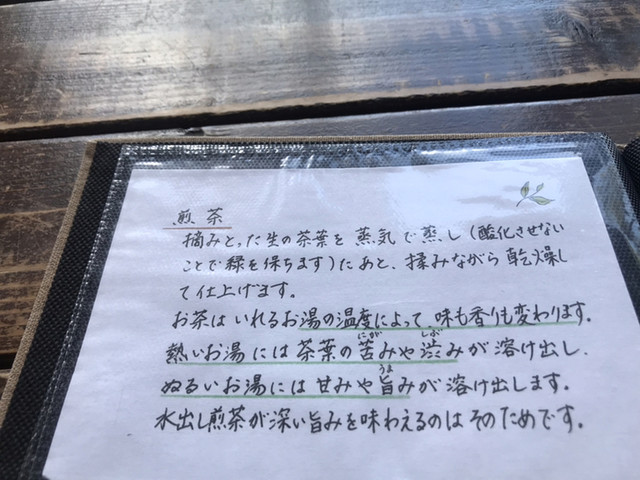 煎茶
摘みとった生の茶葉を蒸気で蒸し(酸化させない
ことで緑を保ちます)たあと、揉みながら乾燥し
て仕上げます。
お茶はいれるお湯の温度によって、味も香りも変わります。
熱いお湯には茶葉の苦(にが)みや渋(しぶ)みが溶け出し、
ぬるいお湯には甘みや旨(うま)みが溶け出します。
水出し煎茶が深い旨みを味わえるのはそのためです。